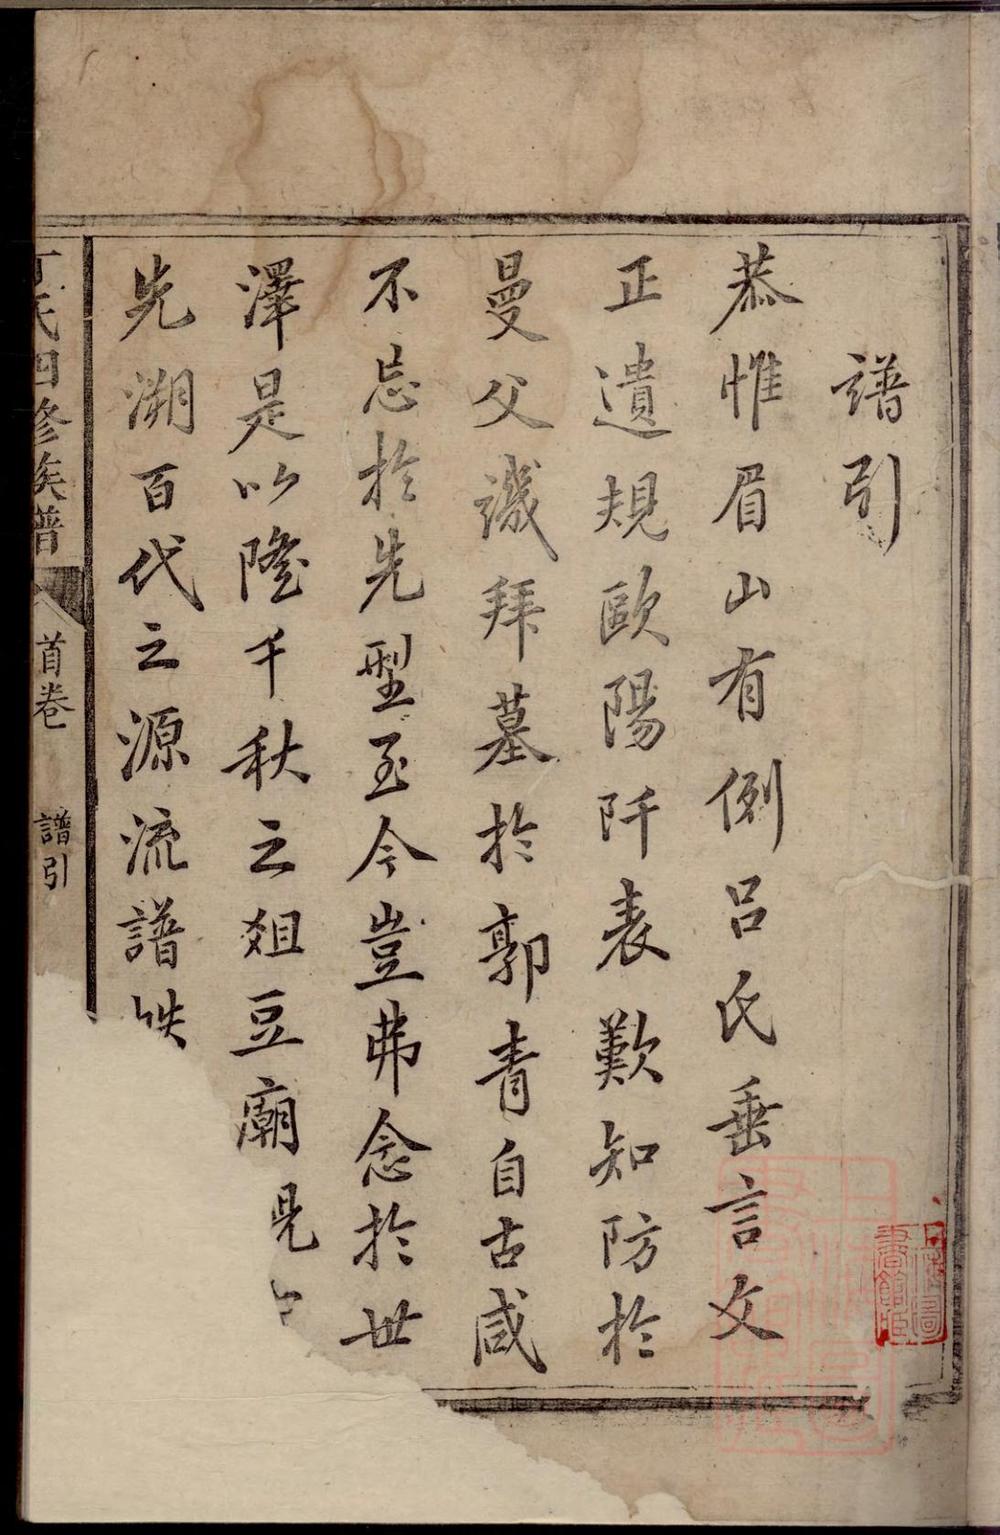 譜引
恭惟眉山有例呂氏垂言文
正遺規歐陽阡表歎知防於
曼父譏拜墓於郭青自古咸
不忘於先型至今豈弗念於世
澤是以隆千秋之俎豆廟見
先溯百代之源流譜
丁氏四修族譜
首卷
譜引
上海圖
書館藏